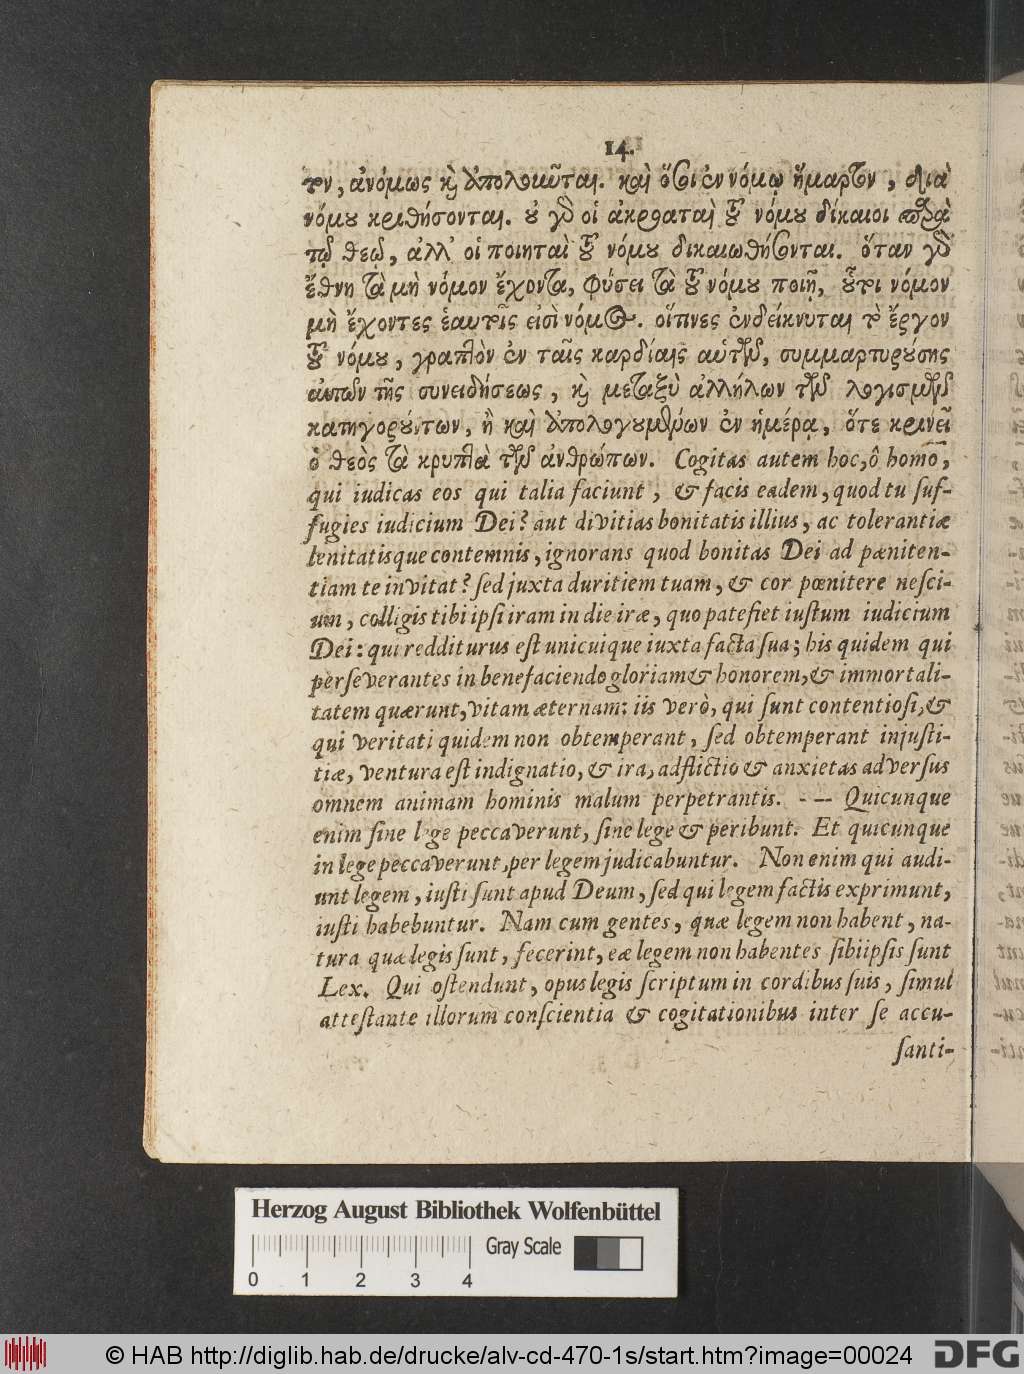 14.
τον, ἀνόμως κỳ ἀπολοιῦται. καὶ ὅσοι ἐν νόμῳ ἥμαρτον, διὰ
νόμου κριθήσονται. ὐ γὸ οἱ ἀκροαταὶ τȣ͂ νόμου δίκαιοι παρὰ
τῷ θεῷ, ἀλλ' οἱ ποιηταὶ τȣ͂ νόμου δικαιωθήσονται. ὅταν γὸ
ἔθνη τὰ μὴ νόμον ἔχοντα, φύσει τὰ τȣ͂ νόμου ποιῇ, ȣ̓͂τοι νόμον
μὴ ἔχοντες ἑαυτοῖς εἰσὶ νόμος. οἵτινες ἐνδείκνυται τὸ ἔργον
τȣ͂ νόμου, γραπτὸν ἐν ταῖς καρδίαις αὐτῶν, συμμαρτυρȣ́σης
αὐτῶν τῆς συνειδήσεως, κỳ μεταξὺ ἀλλήλων τῶν λογισμῶν
κατηγορȣ́ντων, ἢ καὶ ἀπολογȣμένων ἐν ἡμέρᾳ, ὅτε κρινεῖ
ὁ θεὸς τὰ κρυπτὰ τῶν ἀνθρώπων. Cogitas autem hoc, ô homo,
qui iudicas eos qui talia faciunt, & facis eadem, quod tu ſuf-
fugies iudicium Dei? aut divitias bonitatis illius, ac tolerantiæ
lenitatisque contemnis, ignorans quod bonitas Dei ad pœniten-
tiam te invitat? ſed juxta duritiem tuam, & cor pœnitere neſci-
um, colligis tibi ipſi iram in die iræ, quo patefiet iuſtum iudicium
Dei: qui redditurus eſt unicuique iuxta facta ſua; his quidem qui
perſeverantes in benefaciendo gloriam & honorem, & immortali-
tatem quærunt, vitam æternam: iis verò, qui ſunt contentioſi, &
qui veritati quidem non obtemperant, ſed obtemperant injuſti-
tiæ, ventura eſt indignatio, & ira, adflictio & anxietas adverſus
omnem animam hominis malum perpetrantis. - -- Quicunque
enim ſine lege peccaverunt, ſine lege & peribunt. Et quicunque
in lege peccaverunt, per legem judicabuntur. Non enim qui audi-
unt legem, iuſti ſunt apud Deum, ſed qui legem factis exprimunt,
iuſti habebuntur. Nam cum gentes, quæ legem non habent, na-
tura quæ legis ſunt, fecerint, eæ legem non habentes ſibiipſis ſunt
Lex. Qui oſtendunt, opus legis ſcriptum in cordibus ſuis, ſimul
atteſtante illorum conſcientia & cogitationibus inter ſe accu-
ſanti-
Herzog August Bibliothek Wolfenbüttel
Gray Scale
0 1 2 3 4
© HAB http://diglib.hab.de/drucke/alv-cd-470-1s/start.htm?image=00024 DFG